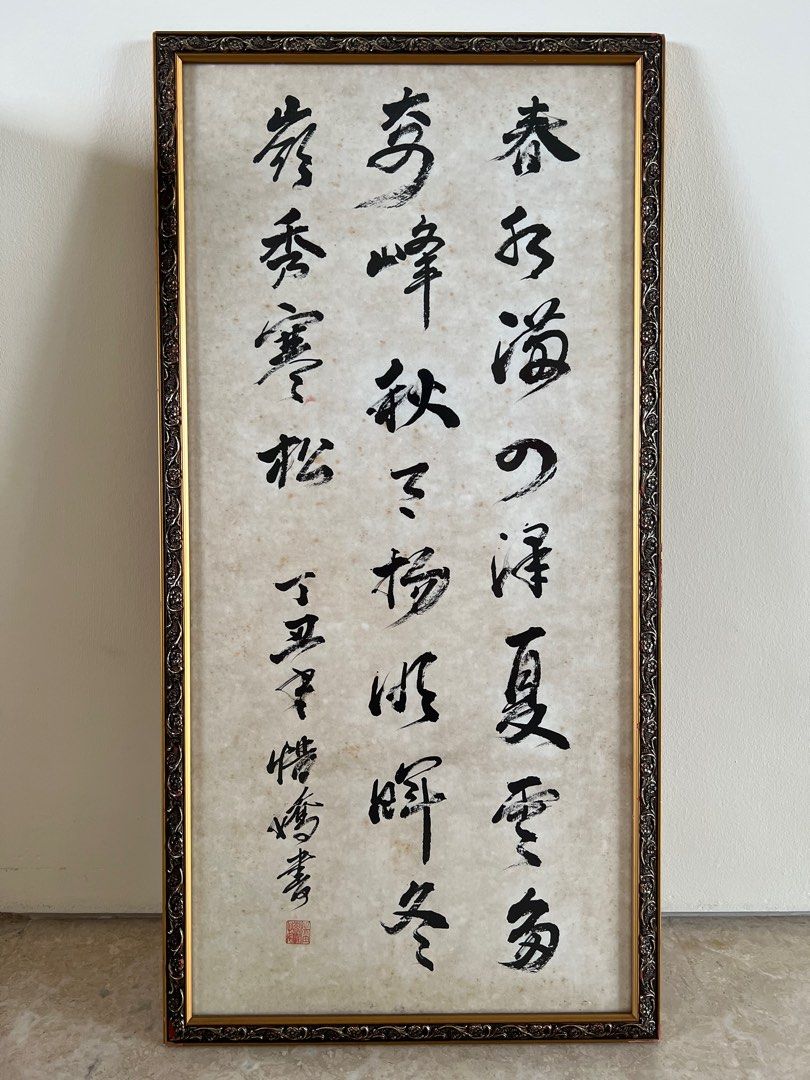 春水滿四澤夏雲多
奇峰秋月揚明暉冬
嶺秀寒松 丁丑年惜嬌書